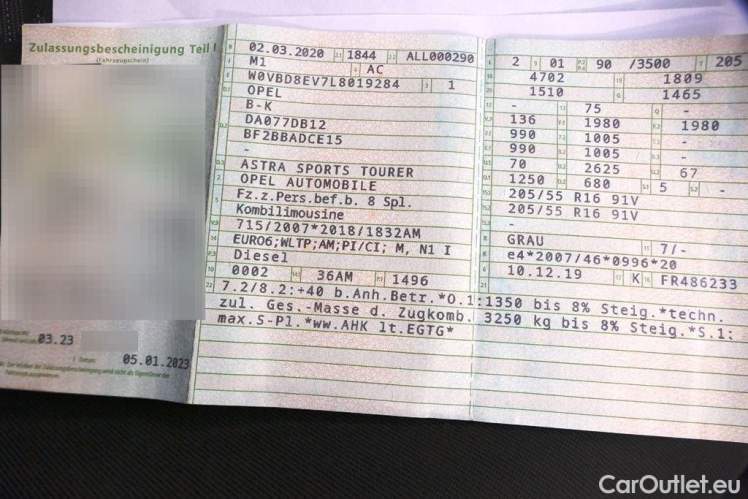 Zulassungsbescheinigung Teil I
(Fahrzeugschein)
03.23
05.01.2023
02.03.2020 1844 ALL000290
M1 AC
W0VBD8EV7L8019284 1
OPEL
B-K
DA077DB12
BF2BBADCE15
-
ASTRA SPORTS TOURER
OPEL AUTOMOBILE
Fz.z.Pers.bef.b. 8 Spl.
Kombilimousine
715/2007*2018/1832AM
EURO6;WLTP;AM;PI/CI; M, N1 I
Diesel
0002 36AM 1496
2 01 90 /3500 205
4702 1809
1510 1465
- 75 -
136 1980 1980
990 1005 -
990 1005 -
70 2625 67
1250 680 5 -
205/55 R16 91V
205/55 R16 91V
-
GRAU 7/-
e4*2007/46*0996*20
10.12.19 K FR486233
22 7.2/8.2:+40 b.Anh.Betr.*O.1:1350 bis 8% Steig.*techn.
zul. Ges.-Masse d. Zugkomb. 3250 kg bis 8% Steig.*S.1:
max.S-Pl.*ww.AHK lt.EGTG*
CarOutlet.eu